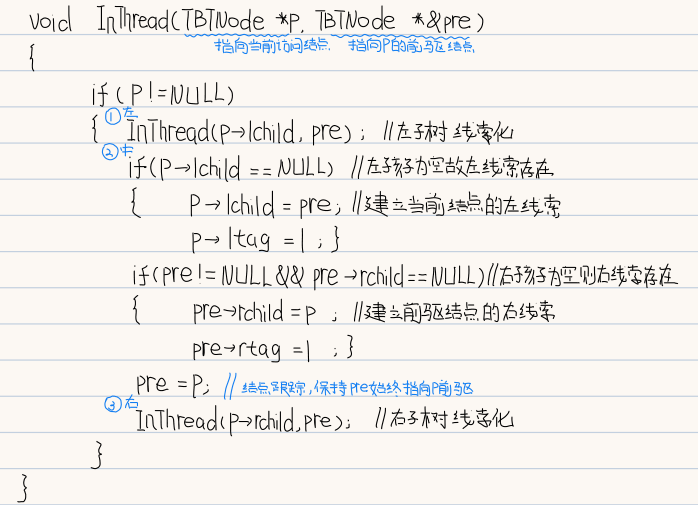 void InThread(TBTNode *P, TBTNode *&pre)
指向当前访问结点 指向P的前驱结点
{
if(P!=NULL)
①左
{ InThread(P→lchild, pre); //左子树线索化
②中
if(P→lchild==NULL) //左孩子为空故左线索存在
{ P→lchild=pre; //建立当前结点的左线索
P→ltag=1;}
if(pre!=NULL&& pre→rchild==NULL)//右孩子为空则右线索存在
{ pre→rchild=p ; //建立前驱结点的右线索
pre→rtag=1 ;}
pre=P; //结点跟踪,保持pre始终指向P前驱
③右
InThread(P→rchild,pre); //右子树线索化
}
}